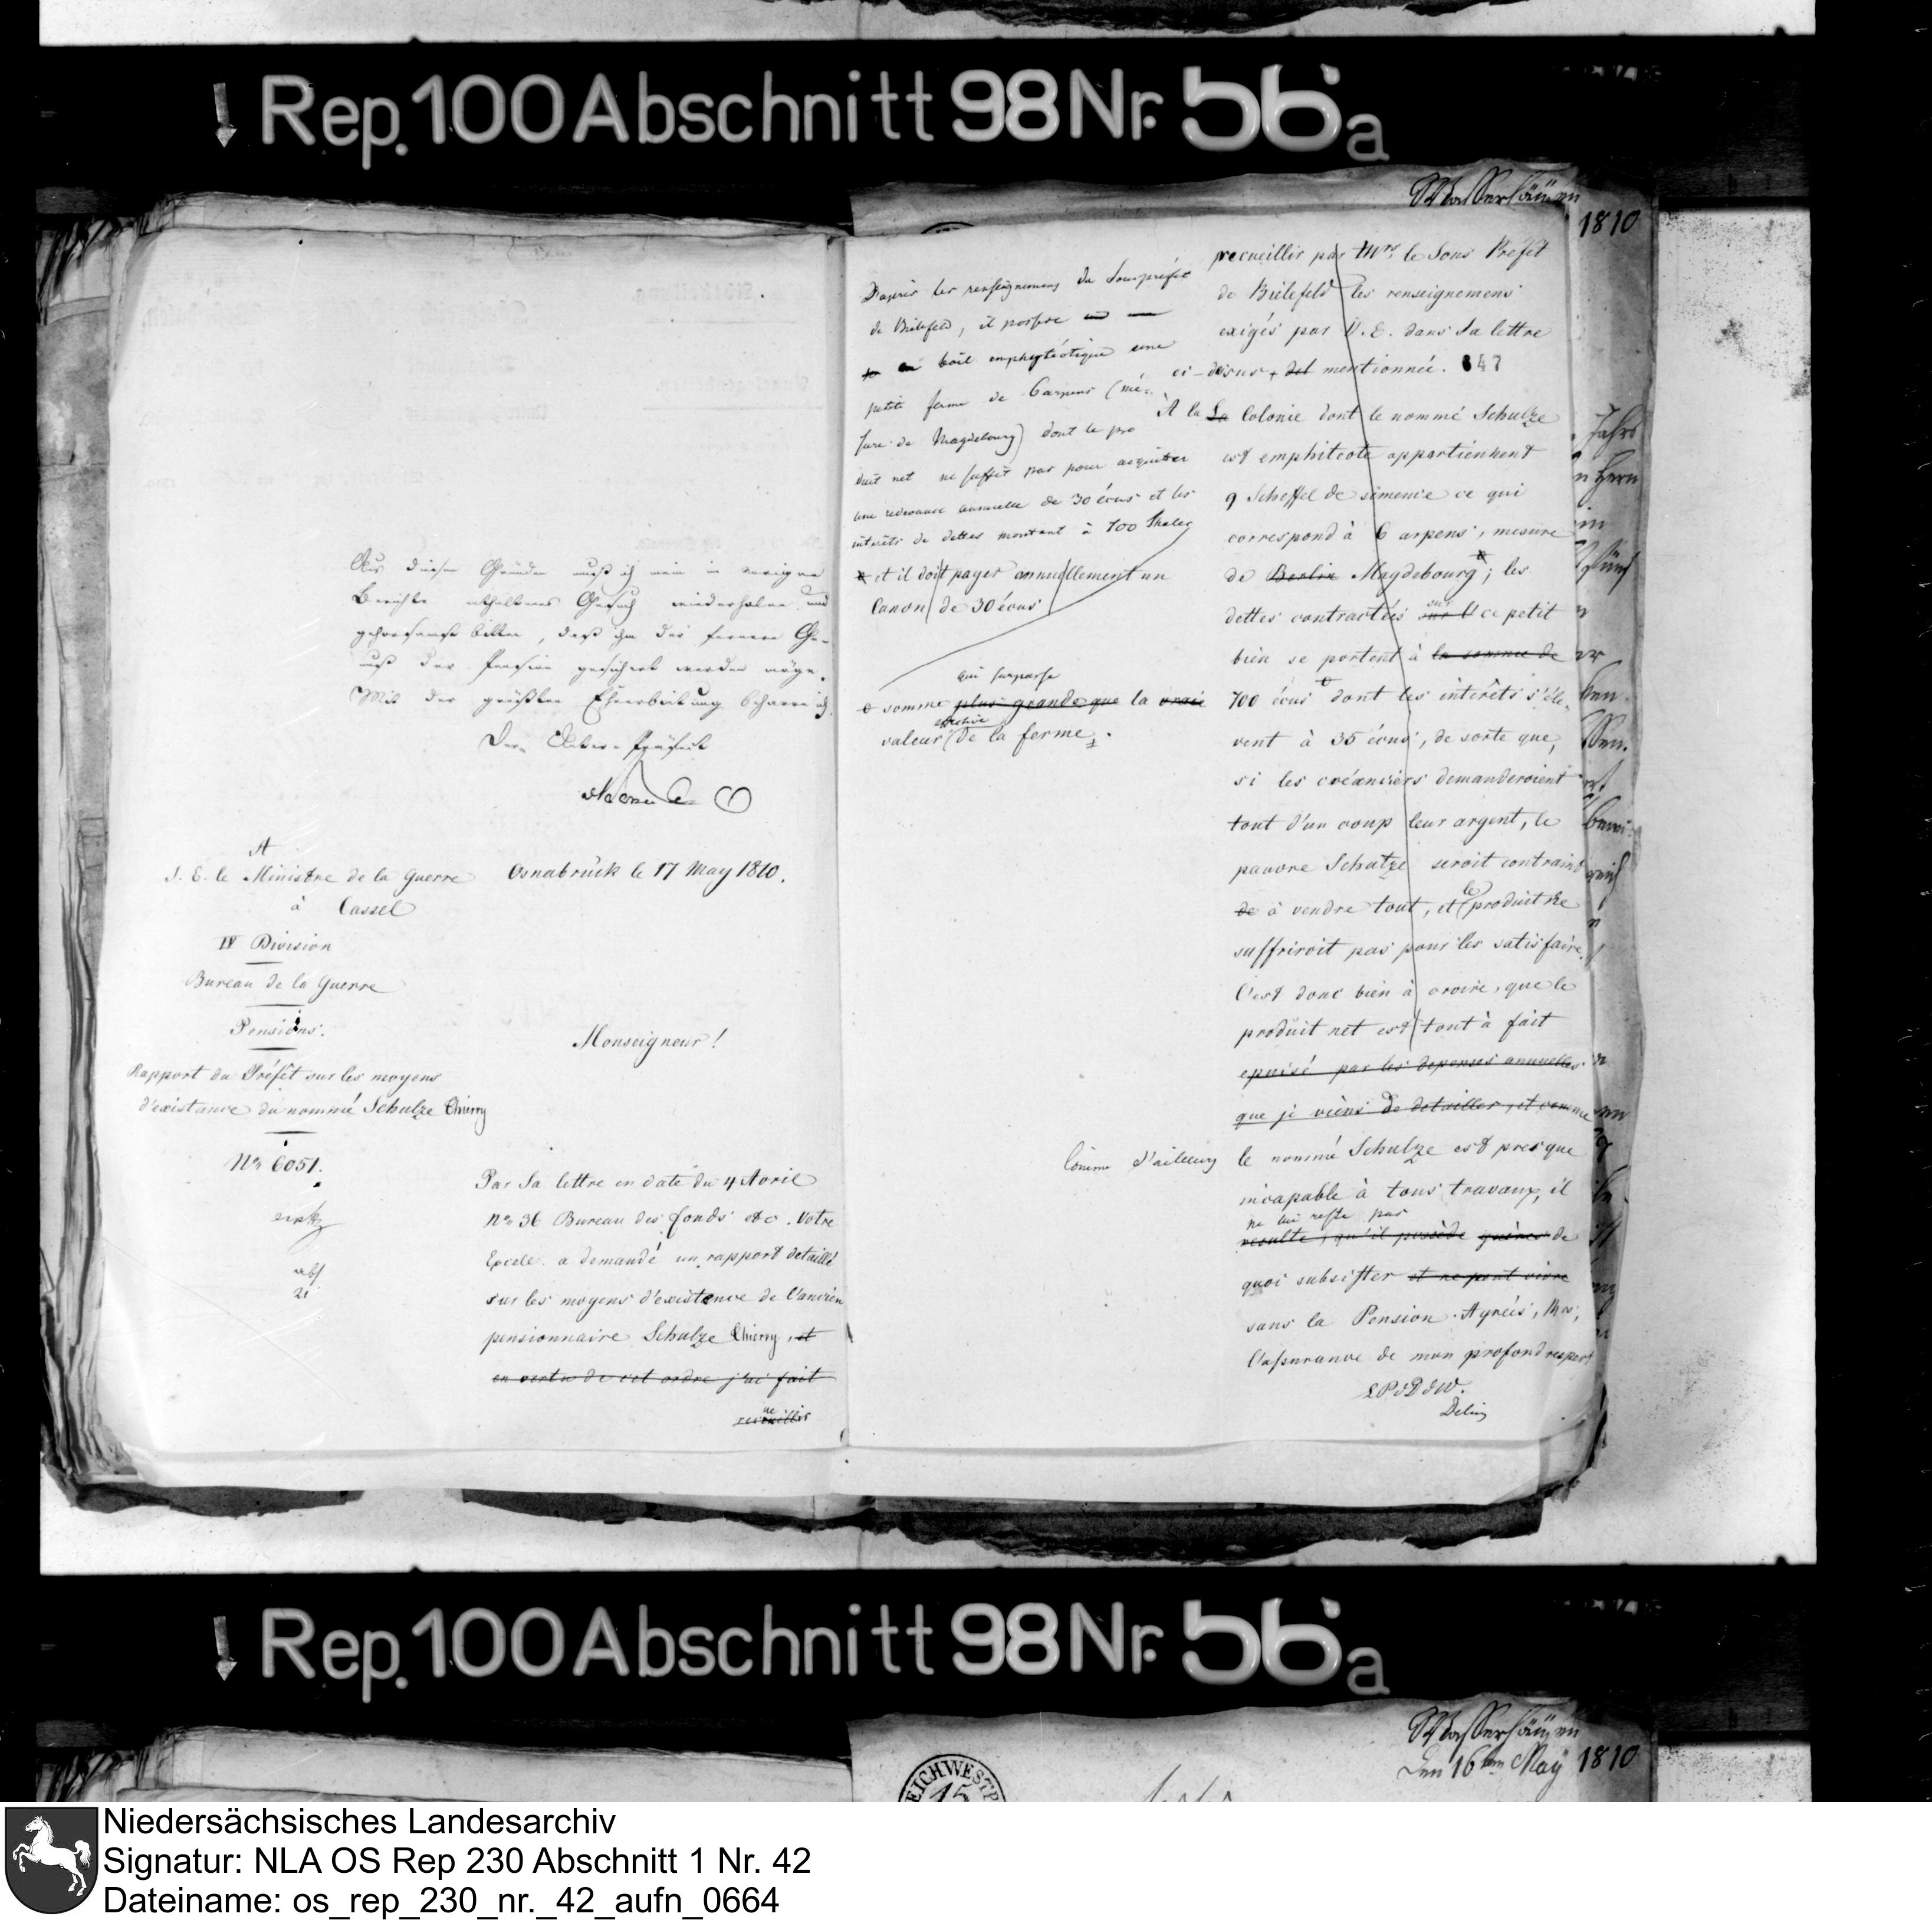 Rep. 100 Abschnitt 98 Nr. 56a
Aus diesen Gründen muß ich mein in vorigem
Berichte enthaltenes Gesuch wiederholen und
gehorsamst bitten, daß ihm der fernere Ge-
nuß der Pension gesichert werden möge.
Mit der größten Ehrerbietung beharre ich
Der Unter-Präfect
A
S. E. le Ministre de la Guerre
à Cassel
Osnabrück le 17 May 1810.
IV Division
Bureau de la Guerre
Pensions.
Rapport du Préfét sur les moyens
d'existance du nommé Schulze Thierry
No 6051.
Monseigneur!
Par Sa lettre en date du 4 Avril
no 36 Bureau des fonds etc. Votre
Excell. a demandé un rapport detaillé
sur les moyens d'existence de l'ancien
pensionnaire Schulze Thierry, et
en vertu de cet ordre j'ai fait
recueillir
1810
D'après les renseignemens du Souspréfet
de Bielefeld, il possède
bail emphytéotique une
petite ferme de 6 arpens (me-
sure de Magdebourg) dont le pro
duit net ne suffit pas pour acquitter
une redevance annuelle de 30 écus et les
intérêts de dettes montant à 700 Thaler
et il doit payer annuellement un
Canon de 30 écus
qui surpasse
somme plus grande que la vraie
effective
valeur de la ferme.
Comme d'ailleurs
recueillir par Mrs. le Sous Prefet
de Bielefeld les renseignemens
exigés par V. E. dans Sa lettre
ci-dessus mentionnée. 847
A la La Colonie dont le nommé Schulze
est emphiteote appartiennent
9 Scheffel de simence ce qui
correspond à 6 arpens, mesure
de Berlin Magdebourg; les
dettes contractées sur ce petit
bien se portent à la somme de
700 écus dont les intérêts s'éle-
vent à 35 écus, de sorte que,
si les créanciers demanderoient
tout d'un coup leur argent, le
pauvre Schulze seroit contraint
de à vendre tout, et le produit ne
suffriroit pas pour les satisfaire.
C'est donc bien à croire, que le
produit net est tout à fait
epuisé par les depenses annuelles
que je viens de detailler, et comme
le nommé Schulze est presque
incapable à tous travaux, il
ne lui reste pas
resulte, qu'il possède guères de
quoi subsister et ne peut vivre
sans la Pension. Agréés, Mr.,
l'assurance de mon profond respect
L P d D d W.
Delius
Rep. 100 Abschnitt 98 Nr. 56a
den 16ten May 1810
Niedersächsisches Landesarchiv
Signatur: NLA OS Rep 230 Abschnitt 1 Nr. 42
Dateiname: os_rep_230_nr._42_aufn_0664